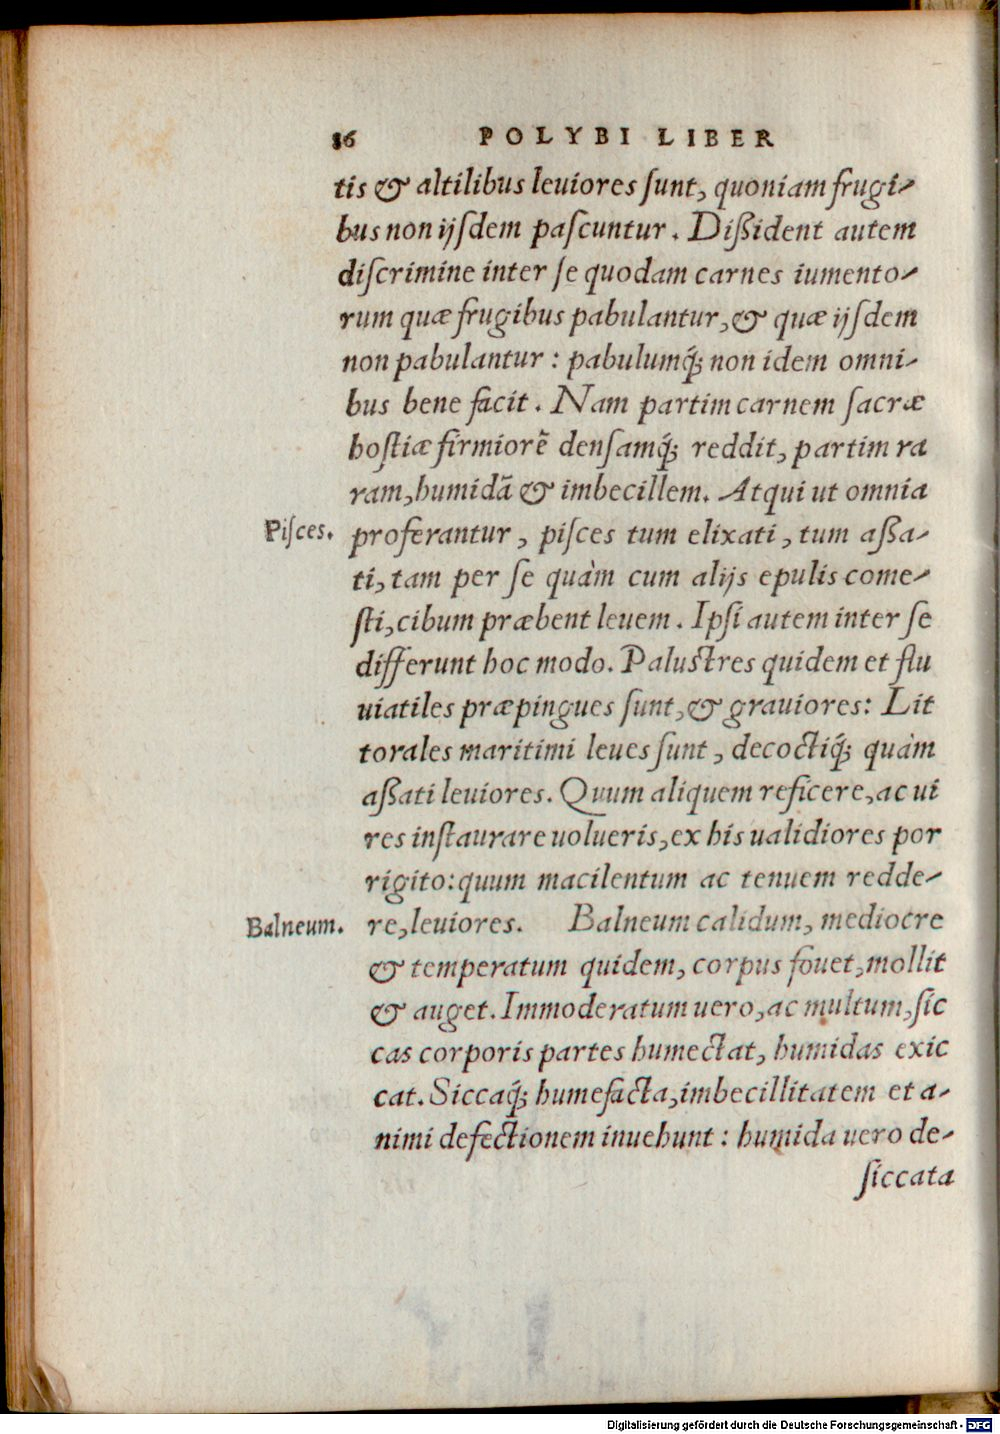 86 POLYBI LIBER
tis & altilibus leuiores ſunt, quoniam frugi-
bus non ijſdem paſcuntur. Dißident autem
diſcrimine inter ſe quodam carnes iumento-
rum quæ frugibus pabulantur, & quæ ijſdem
non pabulantur: pabulumq́; non idem omni-
bus bene facit. Nam partim carnem ſacræ
hoſtiæ firmiorẽ denſamq́; reddit, partim ra
ram, humidã & imbecillem. Atqui ut omnia
Piſces. proferantur, piſces tum elixati, tum aßa-
ti, tam per ſe quàm cum alijs epulis come-
ſti, cibum præbent leuem. Ipſi autem inter ſe
differunt hoc modo. Paluſtres quidem et flu
uiatiles præpingues ſunt, & grauiores: Lit
torales maritimi leues ſunt, decoctiq́; quàm
aßati leuiores. Quum aliquem reficere, ac ui
res inſtaurare uolueris, ex his ualidiores por
rigito: quum macilentum ac tenuem redde-
Balneum. re, leuiores. Balneum calidum, mediocre
& temperatum quidem, corpus fouet, mollit
& auget. Immoderatum uero, ac multum, ſic
cas corporis partes humectat, humidas exic
cat. Siccaq́; humefacta, imbecillitatem et a-
nimi defectionem inuehunt: humida uero de-
ſiccata
Digitalisierung gefördert durch die Deutsche Forschungsgemeinschaft - DFG